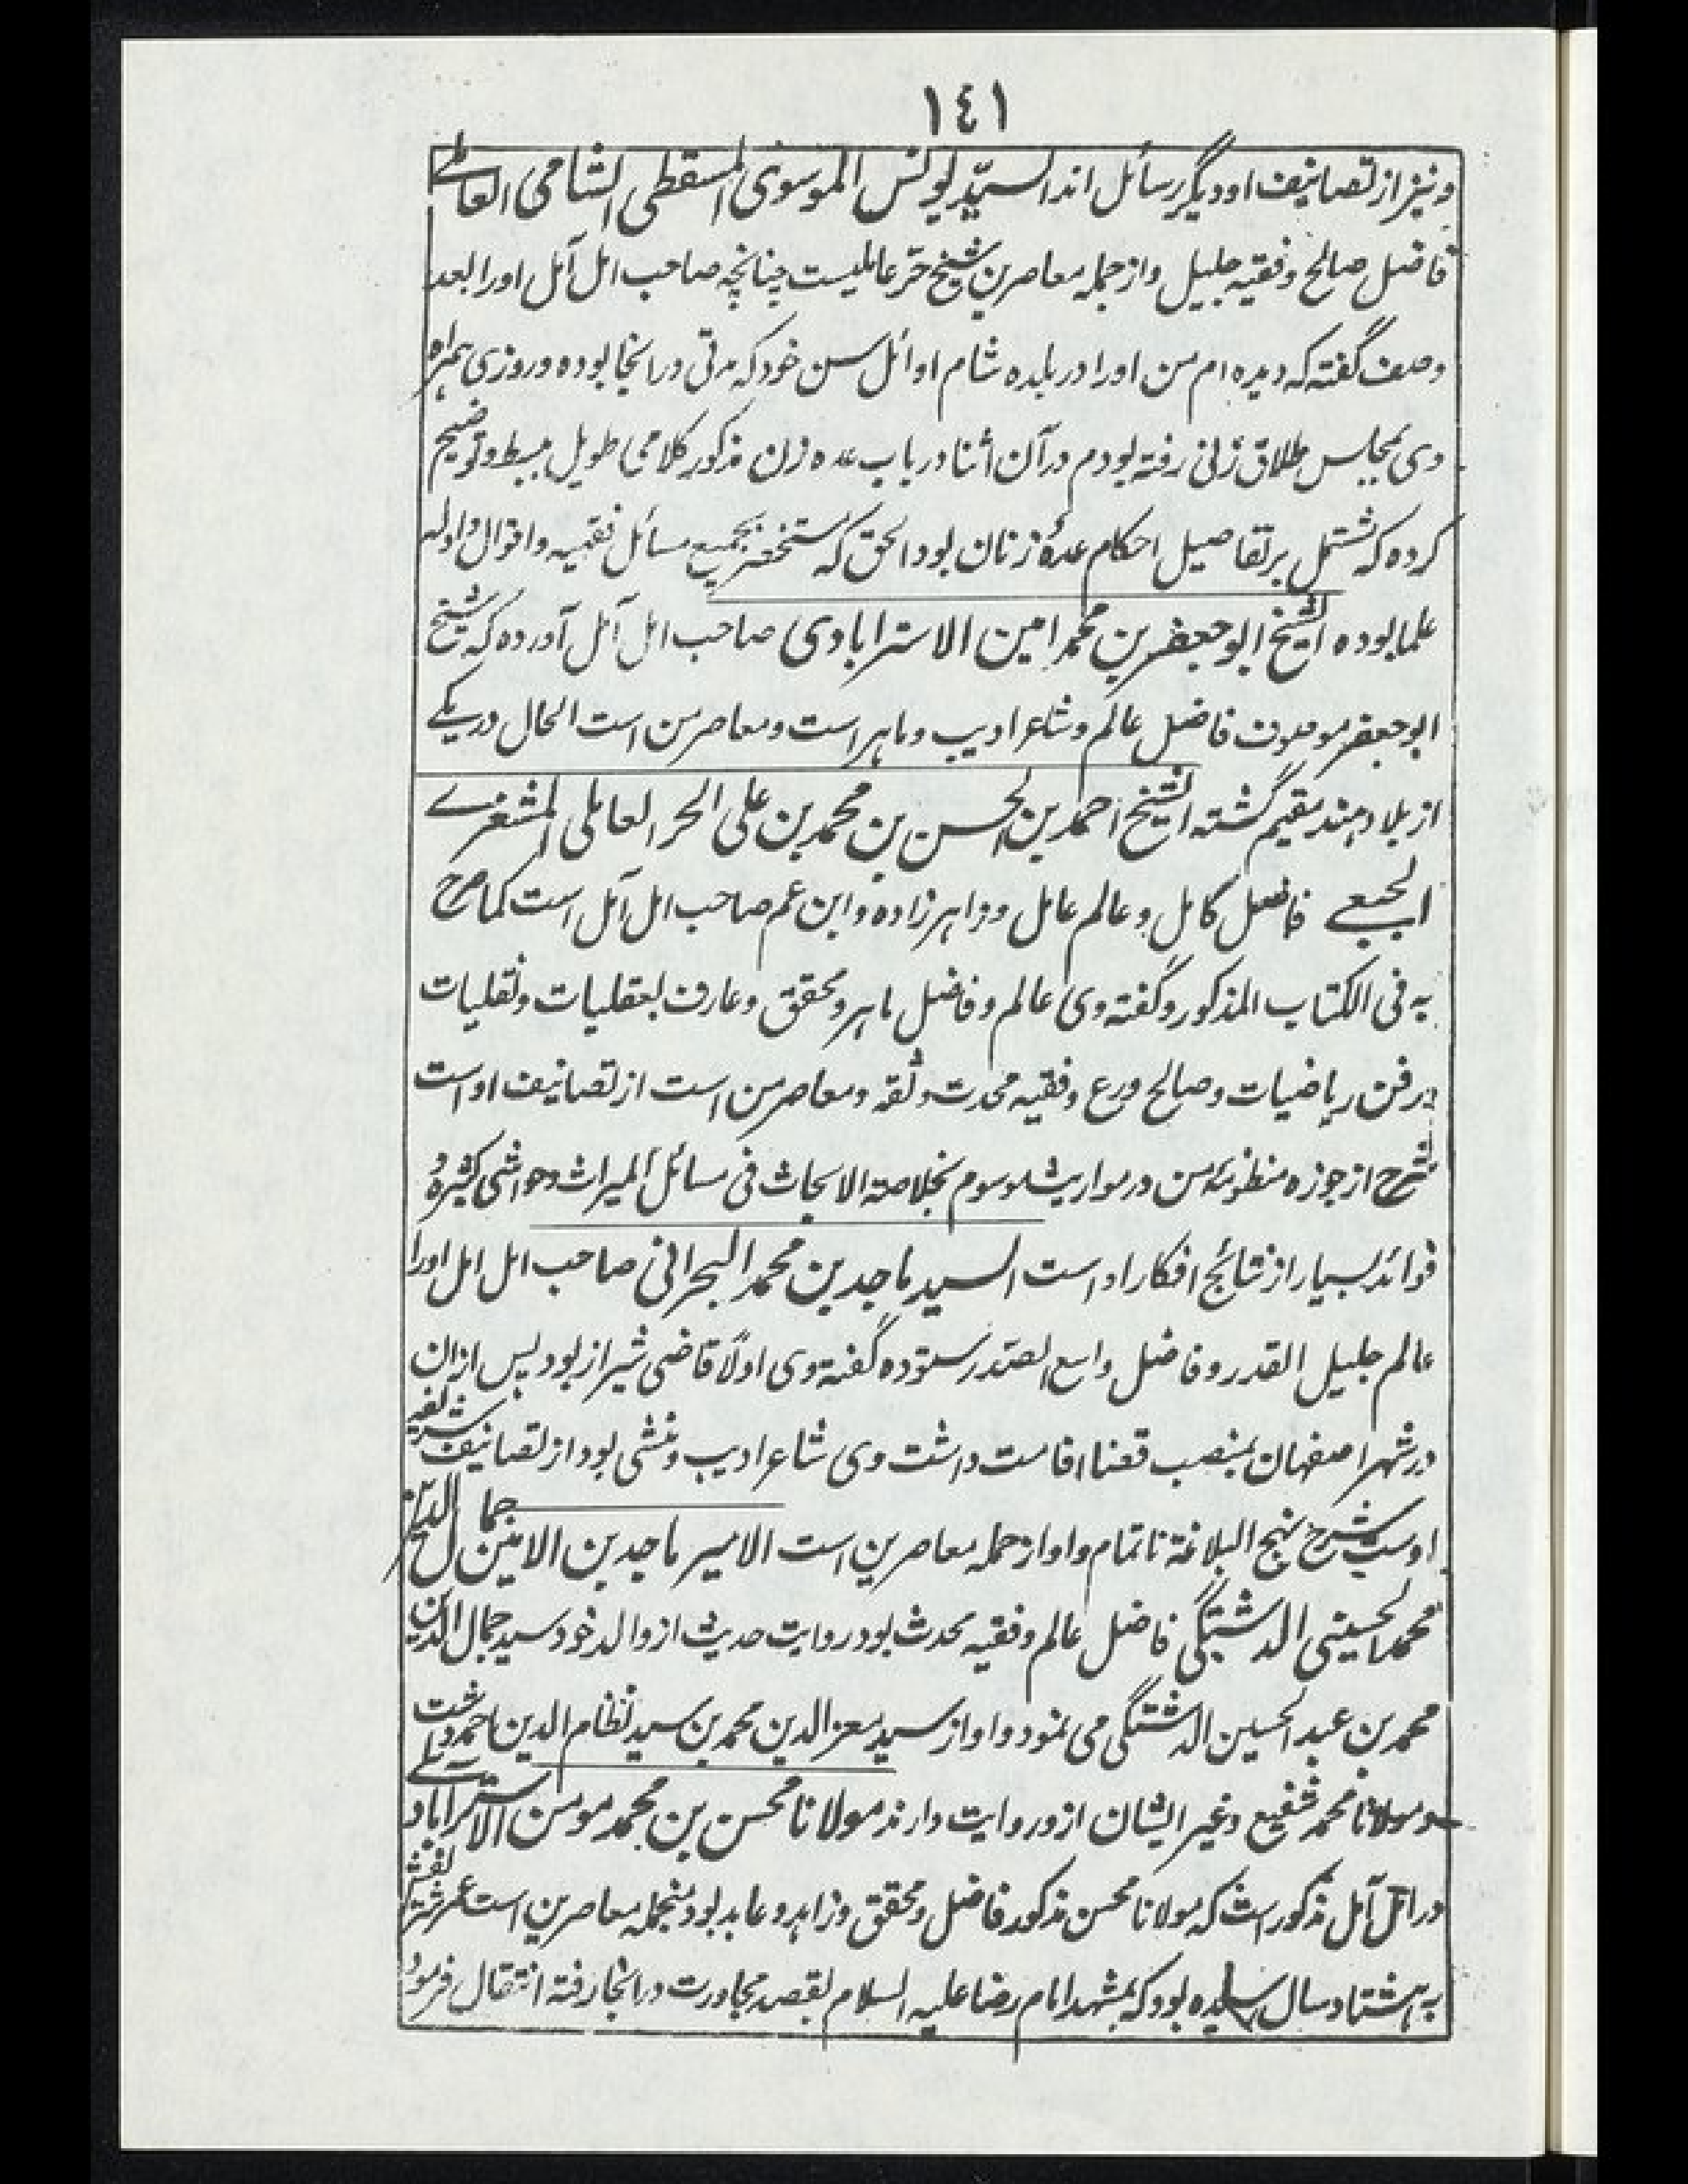 ١٤١
ونیز از تصانیف او دیگر رسائل اند السیّد یونس الموسوی السقطی الشامی العاملے
فاضل صالح و فقیه جلیل و از جمله معاصرین شیخ حرّ عاملیست چنانچه صاحب امل آمل او را بعد
وصف گفته که دیده ام من او را در بلده شام اوائل سن خود که مدتی در انجا بوده و روزی همراه
وی بمجلس طلاق زنی رفته بودم در آن اثنا در باب عده زن مذکور کلامی طویل مبسط و توضیح
کرده که مشتمل بر تفاصیل احکام عدۀ زنان بود الحق که مستحضر بجمیع مسائل فقهیه و اقوال و ادله
علما بوده الشیخ ابو جعفر بن محمد امین الاسترابادی صاحب امل آمل آورده که شیخ
ابو جعفر موصوف فاضل عالم و شاعر ادیب و ماهر است و معاصر من است الحال در یکے
از بلاد هند مقیم گشته الشیخ احمد بن الحسن بن محمد بن علی الحر العاملی المشغرے
الجبعے فاضل کامل و عالم عامل و زاده و ابن عم صاحب امل آمل است کما صرح
به فی الکتاب المذکور و گفته وی عالم و فاضل ماهر و محقق و عارف بعقلیات و نقلیات
در فن ریاضیات و صالح ورع و فقیه محدث و ثقه و معاصر من است از تصانیف او است
شرح ارجوزه منظومه من در مواریث موسوم بخلاصة الابحاث فی مسائل المیراث و حواشی کثیره و
فوائد بسیار از نتائج افکار او است السید ماجد بن محمد البحرانی صاحب امل امل او را
عالم جلیل القدر و فاضل واسع الصدر ستوده گفته وی اولاً قاضی شیراز بود پس ازان
در شهر اصفهان بمنصب قضا اقامت داشت وی شاعر ادیب و منشی بود از تصانیف شریفه
اوست شرح نهج البلاغة ناتمام و او از جمله معاصرین است الامیر ماجد بن الامیر جمال الدین
محمد الحسینی الدشتکی فاضل عالم و فقیه محدث بود روایت حدیث از والد خود سید جمال الدین
محمد بن عبد الحسین الدشتکی می نمود و او از سید معز الدین محمد بن سید نظام الدین احمد دشت
و مولانا محمد شفیع و غیر ایشان ازو روایت دارند مولانا محسن بن محمد مومن الاستراباد
در امل آمل مذکور است که مولانا محسن مذکور فاضل و محقق و زاهد و عابد بود منجمله معاصرین است عمر شریفش
به هشتاد سال رسیده بود که بمشهد امام رضا علیه السلام بقصد مجاورت در انجا رفته انتقال فرمود